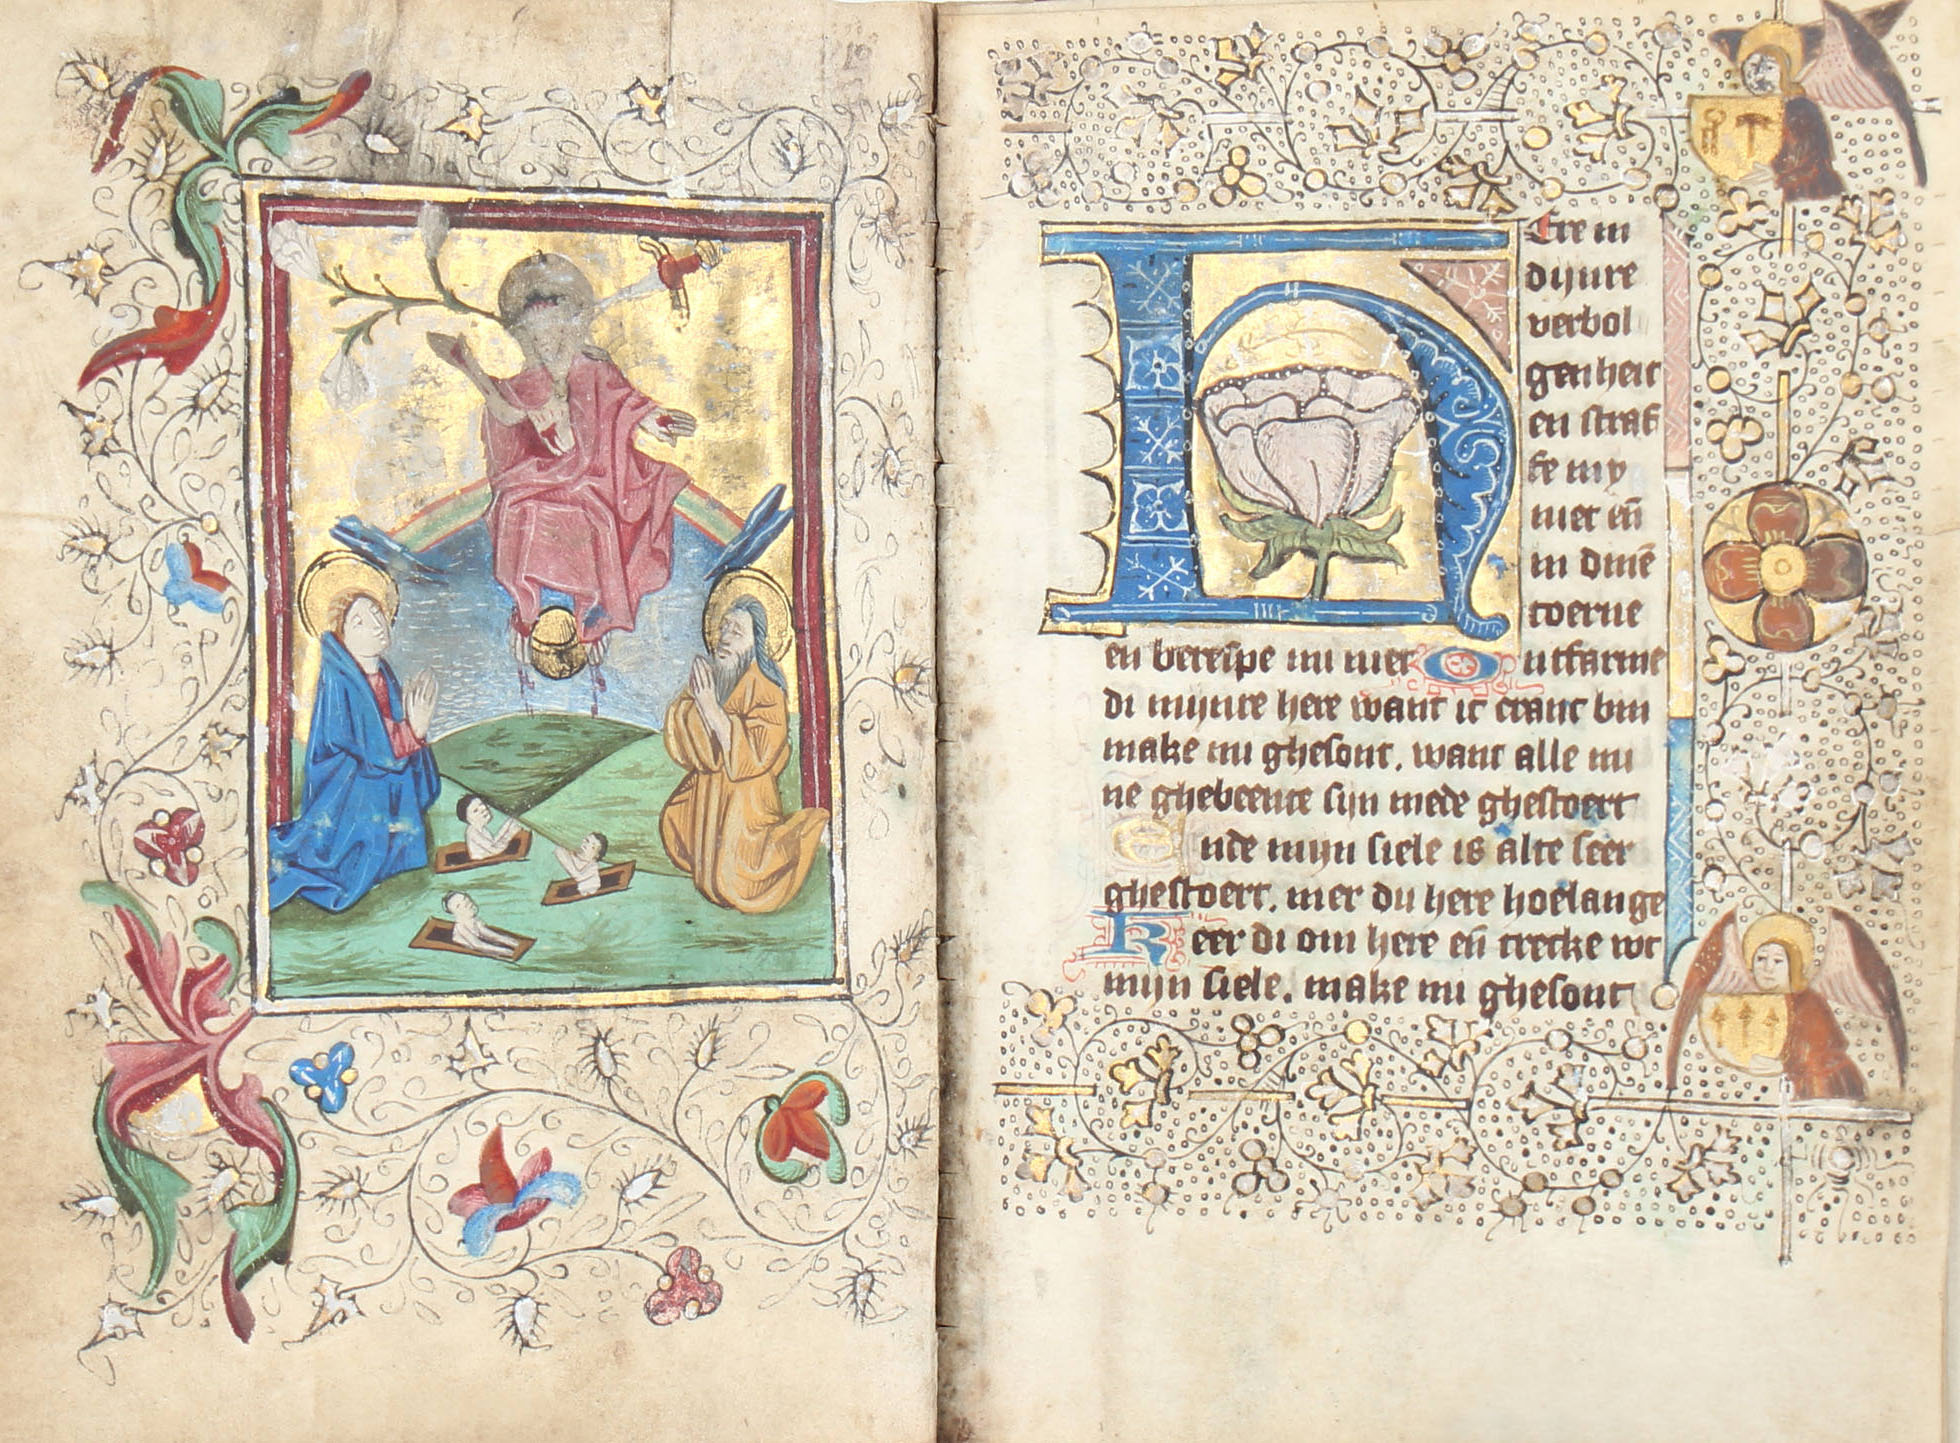 Here in
dijnre
verbol
gentheit
en straf
fe my
niet en̄
in dinē
toerne
en berespe mi niet Ontfarme
di mijnre here want ic cranc bin
make mi ghesont. want alle mi
ne ghebeente sijn mede ghestoert
Ende mijn siele is alte seer
ghestoert. mer du here hoelange
Keer di om here en̄ trecke wt
mijn siele. make mi ghesont